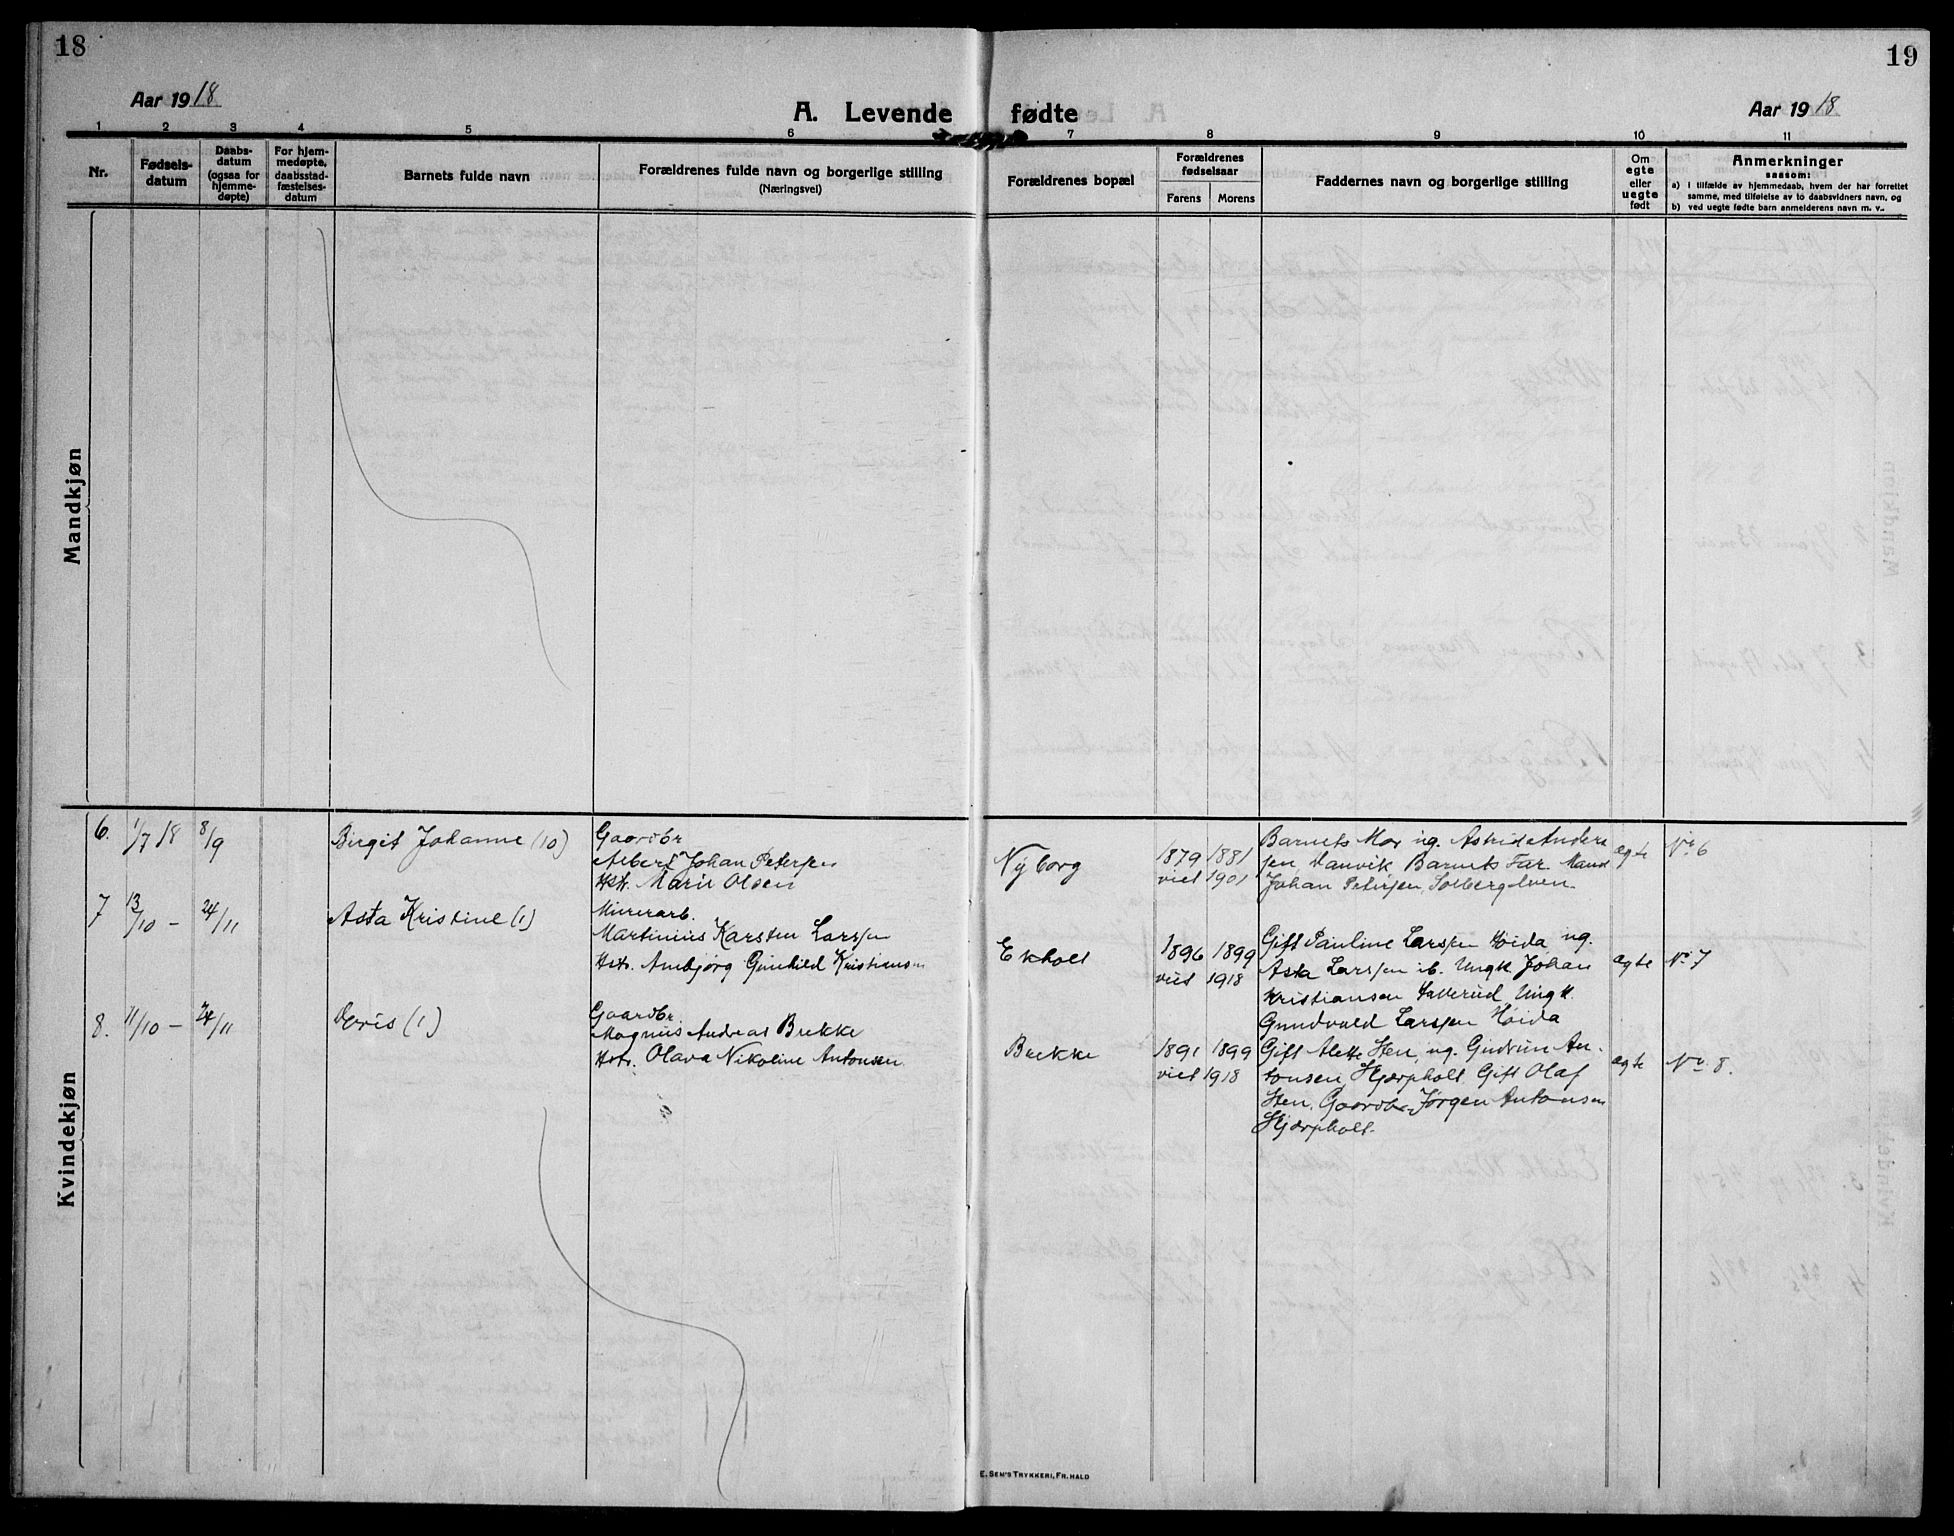 18
19
Aar 1918
A. Levende fødte
Aar 1918
1 2 3 4 5 6 7 8 9 10 11
Nr.
Fødsels-
datum
Daabs-
datum
(ogsaa for
hjemme-
døpte)
For hjem-
medøpte,
daabsstad-
fæstelses-
datum
Barnets fulde navn
Forældrenes fulde navn og borgerlige stilling
(Næringsvei)
Forældrenes bopæl
Forældrenes
fødselsaar
Farens Morens
Faddernes navn og borgerlig stilling
Om
egte
eller
uegte
født
Anmerkninger
saasom:
a) i tilfælde av hjemmedaab, hvem der har forrettet
samme, med tilføielse av to daabsvidners navn, og
b) ved uegte fødte barn anmelderens navn m. v..
Mandkjøn
Kvindekjøn
6. 1/7 18 8/9 Birgit Johanne (10)
Gaardbr
Albert Johan Petersen
Hstr. Marie Olsen
Nyborg
1879 1881
viet 1901
Barnets Mor ug. Astrid Anders
sen Danvik Barnets Far.
Johan Petersen, Solbergelven.
ægte
Nr. 6
7 13/10 - 24/11 Asta Kristine (1)
Murerarb.
Martinius Karsten Larssen
Hstr. Ambjørg Gunhild Kristiansen
Ekholt
1896 1899
viet 1918
Gift Pauline Larssen Høida ug.
Asta Larssen ib. Ungk. Johan
Kristiansen Ungk.
Gundvald Larssen Høida
ægte
Nr. 7
8. 11/10 - 24/11 Doris (1)
Gaardbr.
Magnus Andreas Brekke
Hstr. Olava Nikoline Antonsen
Brekke
1891 1899
viet 1918
Gift Alette Hen, ug. Gudrun An-
tonsen, Hjærpholt. Gift Olaf
Hen, Gaardbr. Jørgen Antonsen
Hjærpholt.
ægte
Nr. 8.
E. SEM'S TRYKKERI, FR.HALD